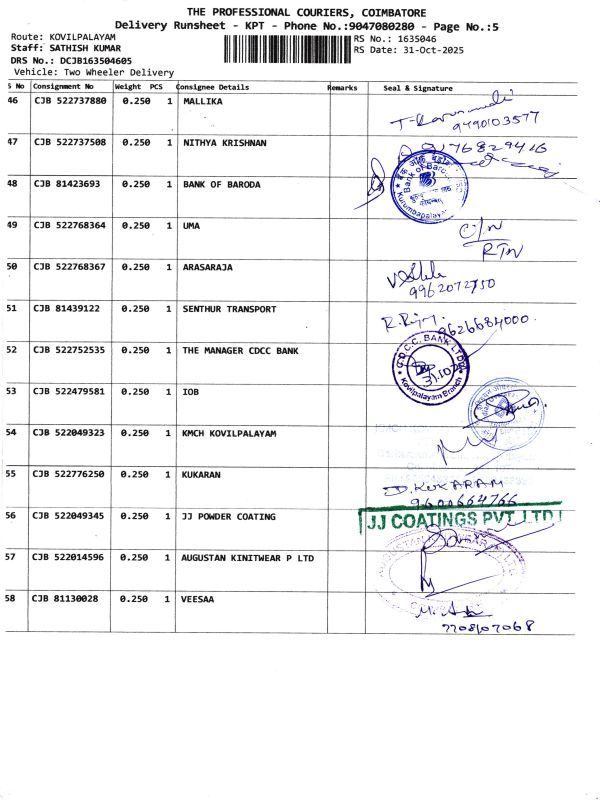 THE PROFESSIONAL COURIERS, COIMBATORE
Delivery Runsheet - KPT - Phone No.:9047080280 - Page No.:5
Route: KOVILPALAYAM
RS No.: 1635046
Staff: SATHISH KUMAR
RS Date: 31-Oct-2025
DRS No.: DCJB163504605
Vehicle: Two Wheeler Delivery
S No Consignment No Weight PCS Consignee Details Remarks Seal & Signature
46 CJB 522737880 0.250 1 MALLIKA
9490103577
47 CJB 522737508 0.250 1 NITHYA KRISHNAN
9176829416
48 CJB 81423693 0.250 1 BANK OF BARODA
Bank of Baroda
Kurumbapalayam
49 CJB 522768364 0.250 1 UMA
C/N
RTN
50 CJB 522768367 0.250 1 ARASARAJA
9962072750
51 CJB 81439122 0.250 1 SENTHUR TRANSPORT
9626684000
52 CJB 522752535 0.250 1 THE MANAGER CDCC BANK
C.D.C.C. BANK LTD
Kovilpalayam Branch
53 CJB 522479581 0.250 1 IOB
54 CJB 522049323 0.250 1 KMCH KOVILPALAYAM
55 CJB 522776250 0.250 1 KUKARAN
D. KUKARAM
9600664766
56 CJB 522049345 0.250 1 JJ POWDER COATING
JJ COATINGS PVT LTD
57 CJB 522014596 0.250 1 AUGUSTAN KINITWEAR P LTD
58 CJB 81130028 0.250 1 VEESAA
7708107068